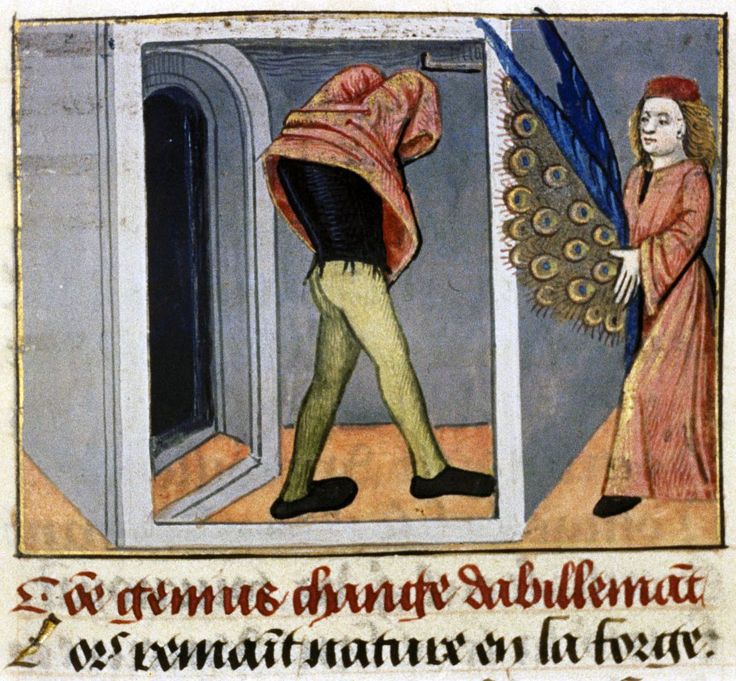 Cõe genius change dabillemãt
Lors remaĩt nature en la forge.